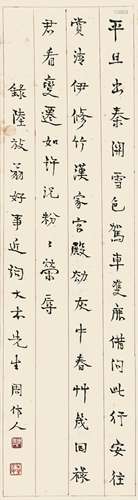 平旦出秦關雪色駕車雙鹿借問此行安往
賞清伊修竹漢家宮殿劫灰中春艸幾回綠
君看變遷如許況紛〻榮辱
錄陸放翁好事近詞大木先生 周作人